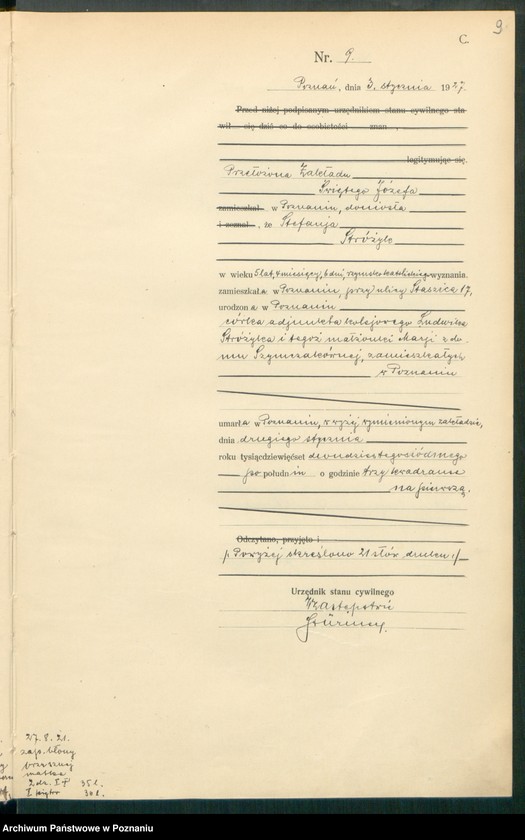 9
C.
Nr. 9.
Poznań, dnia 3. stycznia 1927.
Przed niżej podpisanym urzędnikiem stanu cywilnego sta-
wił się dziś co do osobistości znan ,
legitymując się.
Przełożona Zakładu
Świętego Józefa
zamieszkał w Poznaniu, doniosła
i zeznał , że Stefanja
Stróżyk
w wieku 5 lat, 4 miesięcy, 6 dni, rzymsko katolickiego wyznania.
zamieszkała w Poznaniu, przy ulicy Staszica 17,
urodzona w Poznaniu
córka adjunkta kolejowego Ludwika
Stróżyka i tegoż małżonki Marji z do-
mu Szymczakównej, zamieszkałych
w Poznaniu
umarła w Poznaniu, w wyżej wymienionym zakładzie,
dnia drugiego stycznia
roku tysiącdziewięćset dwudziestegosiódmego
po południu o godzinie trzy kwadranse
na pierwszą.
Odczytano, przyjęto i
/: Powyżej skreślono 21 słów druku :/
Urzędnik stanu cywilnego
W zastępstwie
27. 8. 21.
zap. błony
matka
35 l.
30 l.
Archiwum Państwowe w Poznaniu